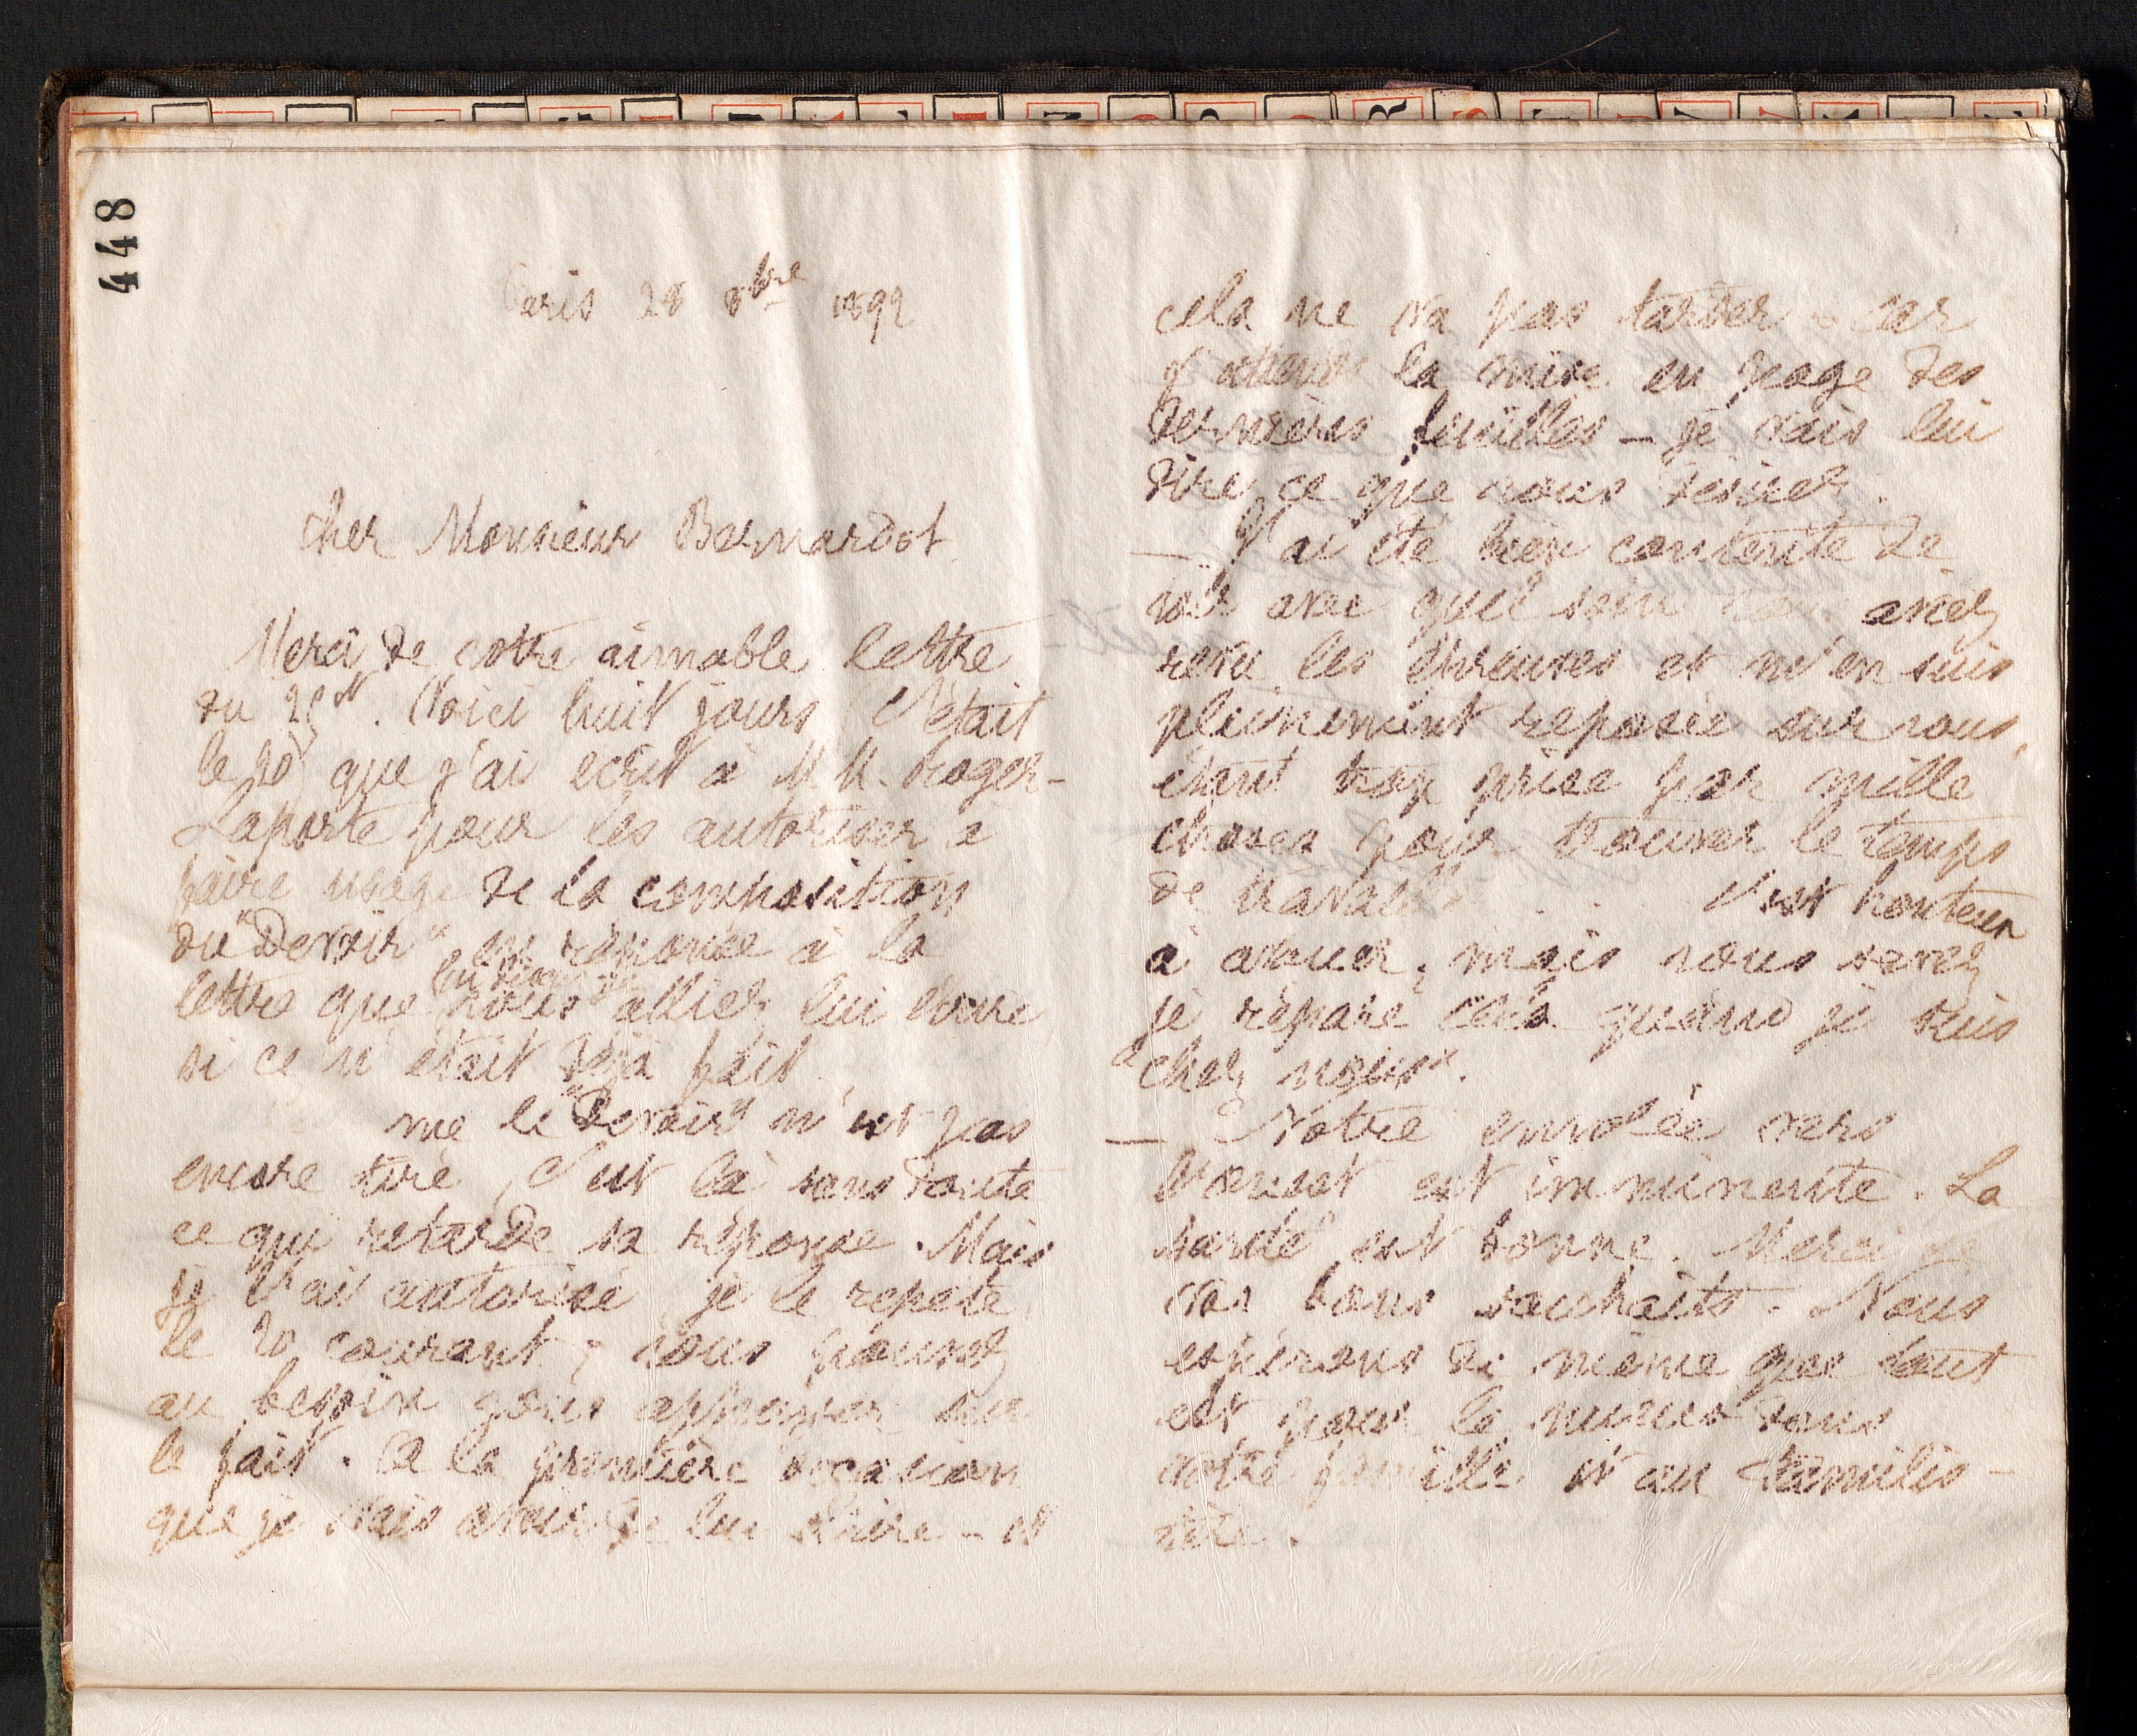 448
Paris 28 8bre 1892
Cher Monsieur Bernardot
Merci de votre aimable lettre
du 25 ct. Voici huit jours (C'était
le 20) que j'ai écrit à M.M. Roger-
Laporte pour les autoriser à
faire usage de la composition
du "Devoir" en réponse à la
lettre que vous alliez lui écrire
si ce n'était déjà fait.
me le "Devoir" n'est pas
encore tiré, c'est là sans doute
ce qui retarde sa réponse. Mais
je l'ai autorisé, je le répète
le 20 courant; vous pouvez
au besoin vous appuyer sur
le fait. A la première occasion
que je vais avoir de lui écrire - et
cela ne va pas tarder car
j'attends la mise en page des
dernières feuilles - je vais lui
dire ce que vous désirez.
— J'ai été bien contente de
voir avec quel soin vous aviez
revu les épreuves et m'en suis
pleinement reposée sur vous,
étant trop prise par mille
choses pour trouver le temps
de travail . . C'est honteux
à avouer, mais vous savez
je répare cela quand je suis
"chez nous".
— Notre envolée vers
Lorient est imminente. La
santé est bonne. Merci de
vos bons souhaits. Nous
espérons de même que tout
est pour le mieux dans
votre famille et au Familis-
tère.